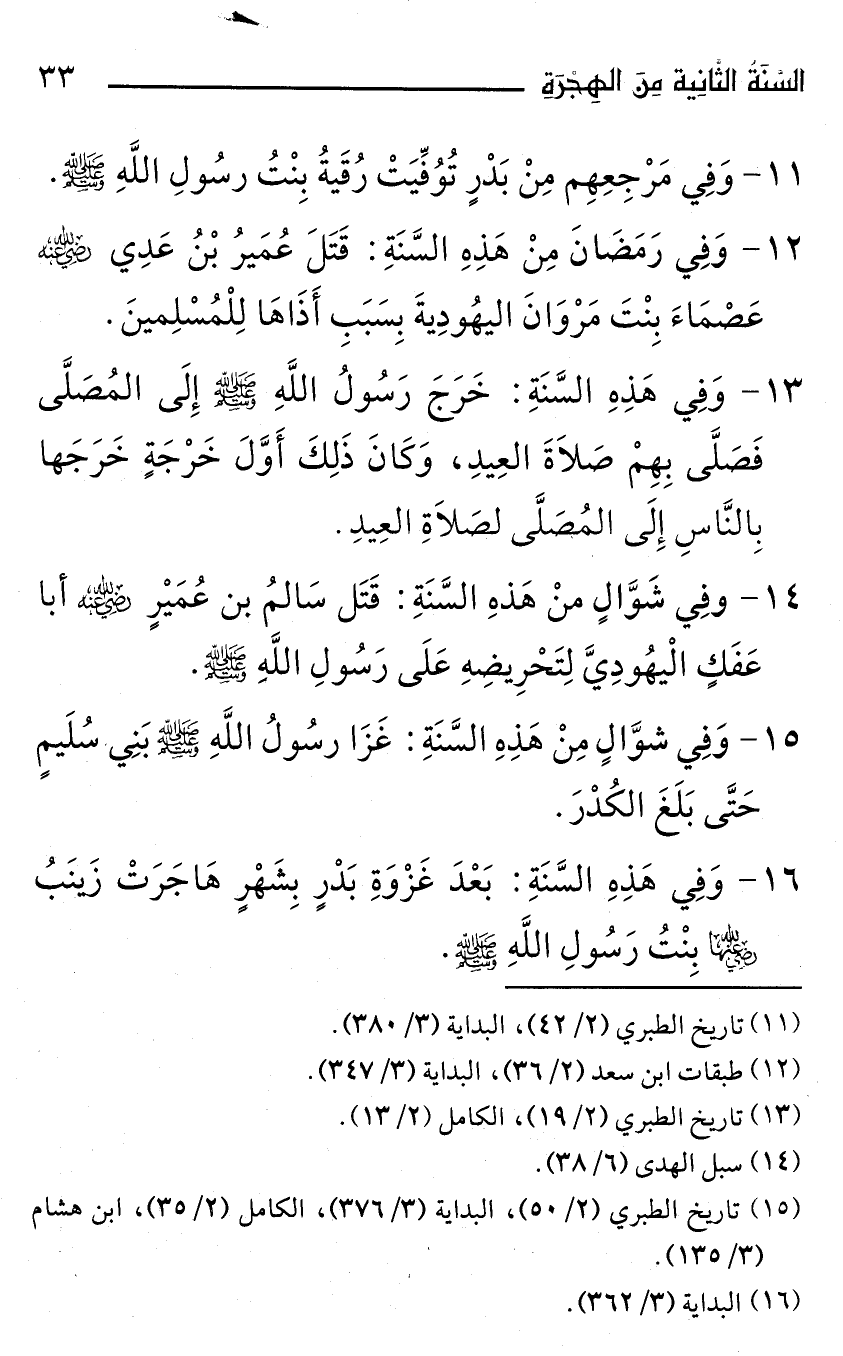 السُّنَةُ الثَّانِية مِنَ الهِجْرَةِ ٣٣
١١- وَفِي مَرْجِعِهِم مِنْ بَدْرٍ تُوُفِّيَتْ رُقَيةُ بِنْتُ رسُولِ اللَّهِ ﷺ.
١٢- وَفِي رَمَضَانَ مِنْ هَذِهِ السَّنَةِ: قَتَلَ عُمَيرُ بْنُ عَدِي رضي الله عنه
عَصْمَاءَ بِنْتَ مَرْوَانَ اليهُودِيةَ بِسَبَبِ أَذَاهَا لِلْمُسْلِمينَ.
١٣- وَفِي هَذِهِ السَّنَةِ: خَرَجَ رَسُولُ اللَّهِ ﷺ إِلَى المُصَلَّى
فَصَلَّى بِهِمْ صَلاَةَ العِيدِ، وَكَانَ ذَلِكَ أَوَّلَ خَرْجَةٍ خَرَجَها
بِالنَّاسِ إِلَى المُصَلَّى لصَلاَةِ العِيدِ.
١٤- وفِي شَوَّالٍ منْ هَذهِ السَّنَةِ: قَتَل سَالمُ بن عُمَيْرٍ رضي الله عنه أبا
عَفَكٍ الْيهُودِيَّ لِتَحْرِيضِهِ عَلَى رَسُولِ اللَّهِ ﷺ.
١٥- وَفِي شوَّالٍ مِنْ هَذِهِ السَّنَةِ: غَزَا رسُولُ اللَّهِ ﷺ بَنِي سُلَيمٍ
حَتَّى بَلَغَ الكُدْرَ.
١٦- وَفِي هَذِهِ السَّنَةِ: بَعْدَ غَزْوَةِ بَدْرٍ بِشَهْرٍ هَاجَرَتْ زَينَبُ
رضي الله عنها بِنْتُ رَسُولِ اللَّهِ ﷺ.
(١١) تاريخ الطبري (٢/ ٤٢)، البداية (٣/ ٣٨٠).
(١٢) طبقات ابن سعد (٢/ ٣٦)، البداية (٣/ ٣٤٧).
(١٣) تاريخ الطبري (٢/ ١٩)، الكامل (٢/ ١٣).
(١٤) سبل الهدى (٦/ ٣٨).
(١٥) تاريخ الطبري (٢/ ٥٠)، البداية (٣/ ٣٧٦)، الكامل (٢/ ٣٥)، ابن هشام
(٣/ ١٣٥).
(١٦) البداية (٣/ ٣٦٢).